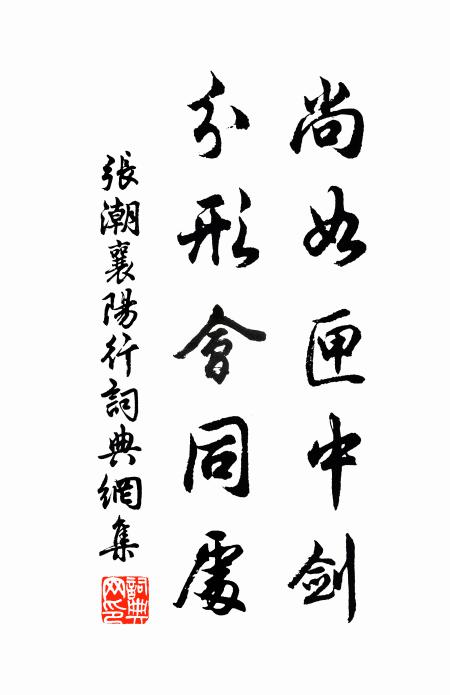 尚如匣中劍
分形會同處
張潮襄陽行詞典網集
詞典
网印